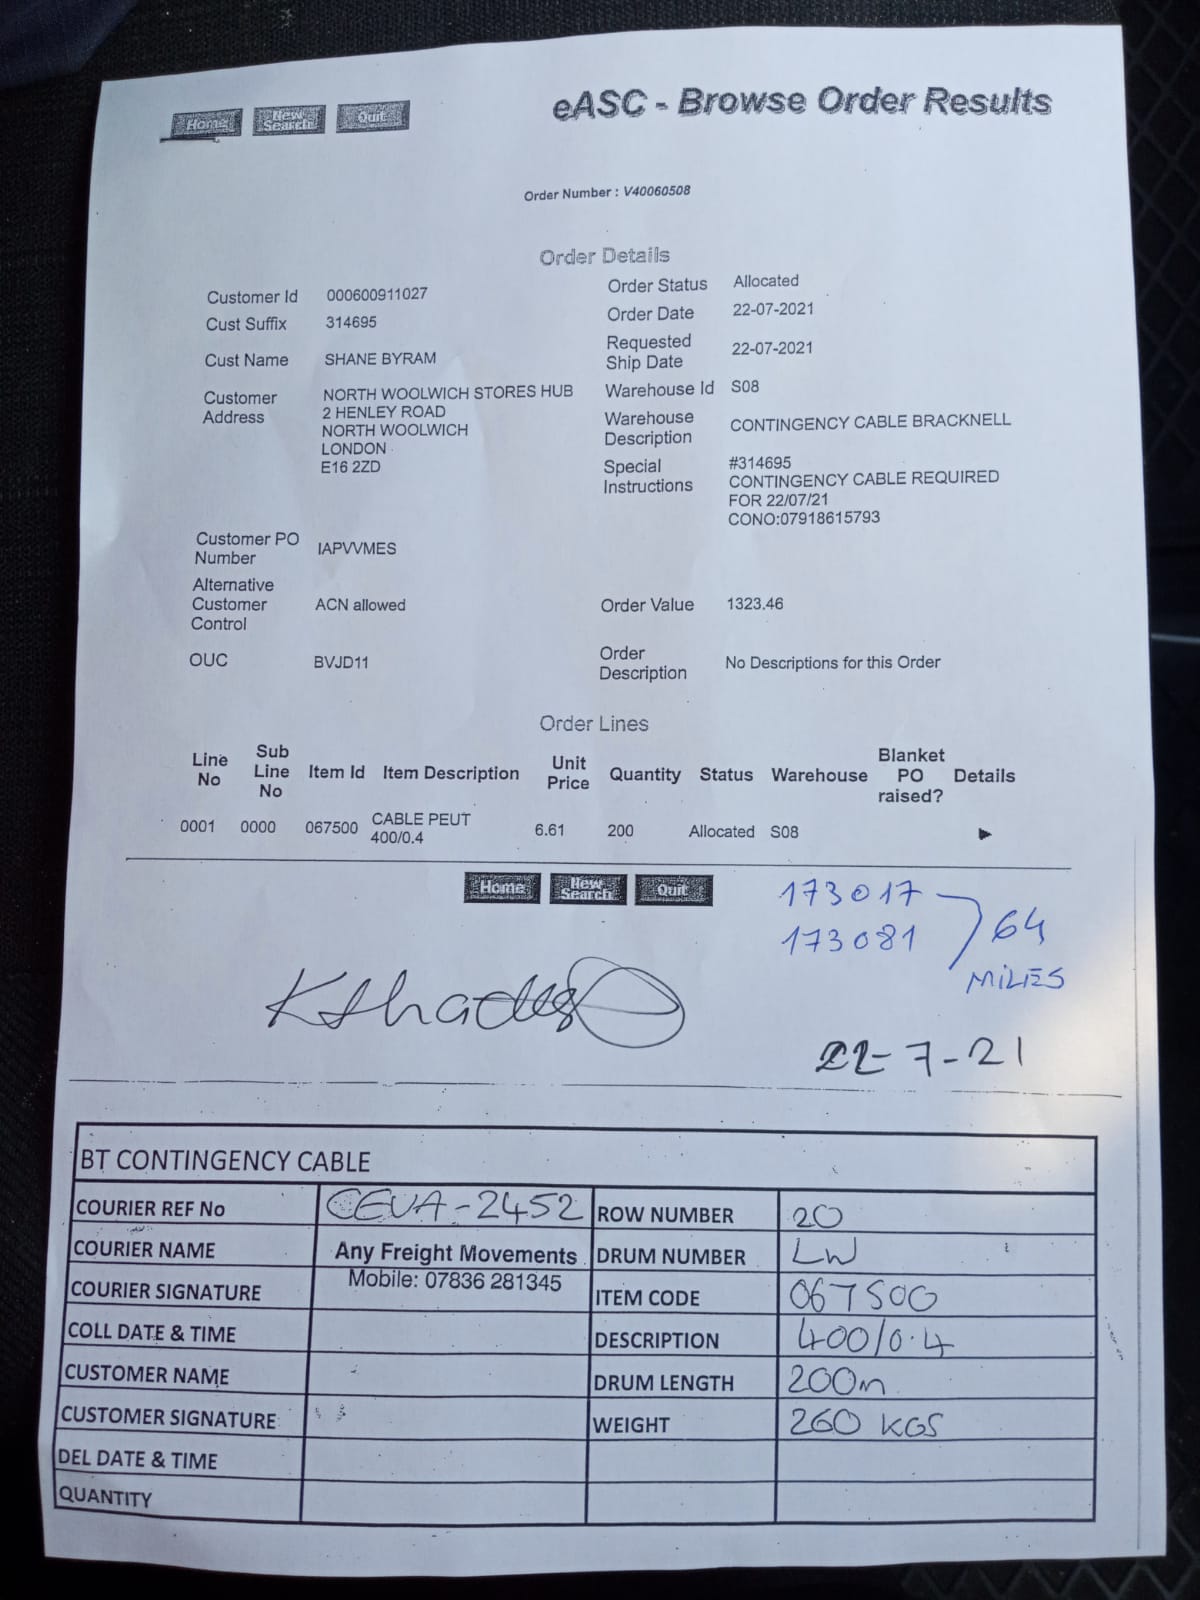 Home New Search Quit
eASC - Browse Order Results
Order Number : V40060508
Order Details
Customer Id 000600911027
Cust Suffix 314695
Cust Name SHANE BYRAM
Customer Address NORTH WOOLWICH STORES HUB
2 HENLEY ROAD
NORTH WOOLWICH
LONDON
E16 2ZD
Order Status Allocated
Order Date 22-07-2021
Requested Ship Date 22-07-2021
Warehouse Id S08
Warehouse Description CONTINGENCY CABLE BRACKNELL
Special Instructions #314695
CONTINGENCY CABLE REQUIRED
FOR 22/07/21
CONO:07918615793
Customer PO Number IAPVVMES
Alternative Customer Control ACN allowed
Order Value 1323.46
OUC BVJD11
Order Description No Descriptions for this Order
Order Lines
Line No Sub Line No Item Id Item Description Unit Price Quantity Status Warehouse Blanket PO raised? Details
0001 0000 067500 CABLE PEUT 400/0.4 6.61 200 Allocated S08
Home New Search Quit
173017
173081
64
MILES
22-7-21
BT CONTINGENCY CABLE
COURIER REF No CEVA-2452 ROW NUMBER 20
COURIER NAME Any Freight Movements DRUM NUMBER LW
COURIER SIGNATURE Mobile: 07836 281345 ITEM CODE 067500
COLL DATE & TIME DESCRIPTION 400/0.4
CUSTOMER NAME DRUM LENGTH 200m
CUSTOMER SIGNATURE WEIGHT 260 KGS
DEL DATE & TIME
QUANTITY